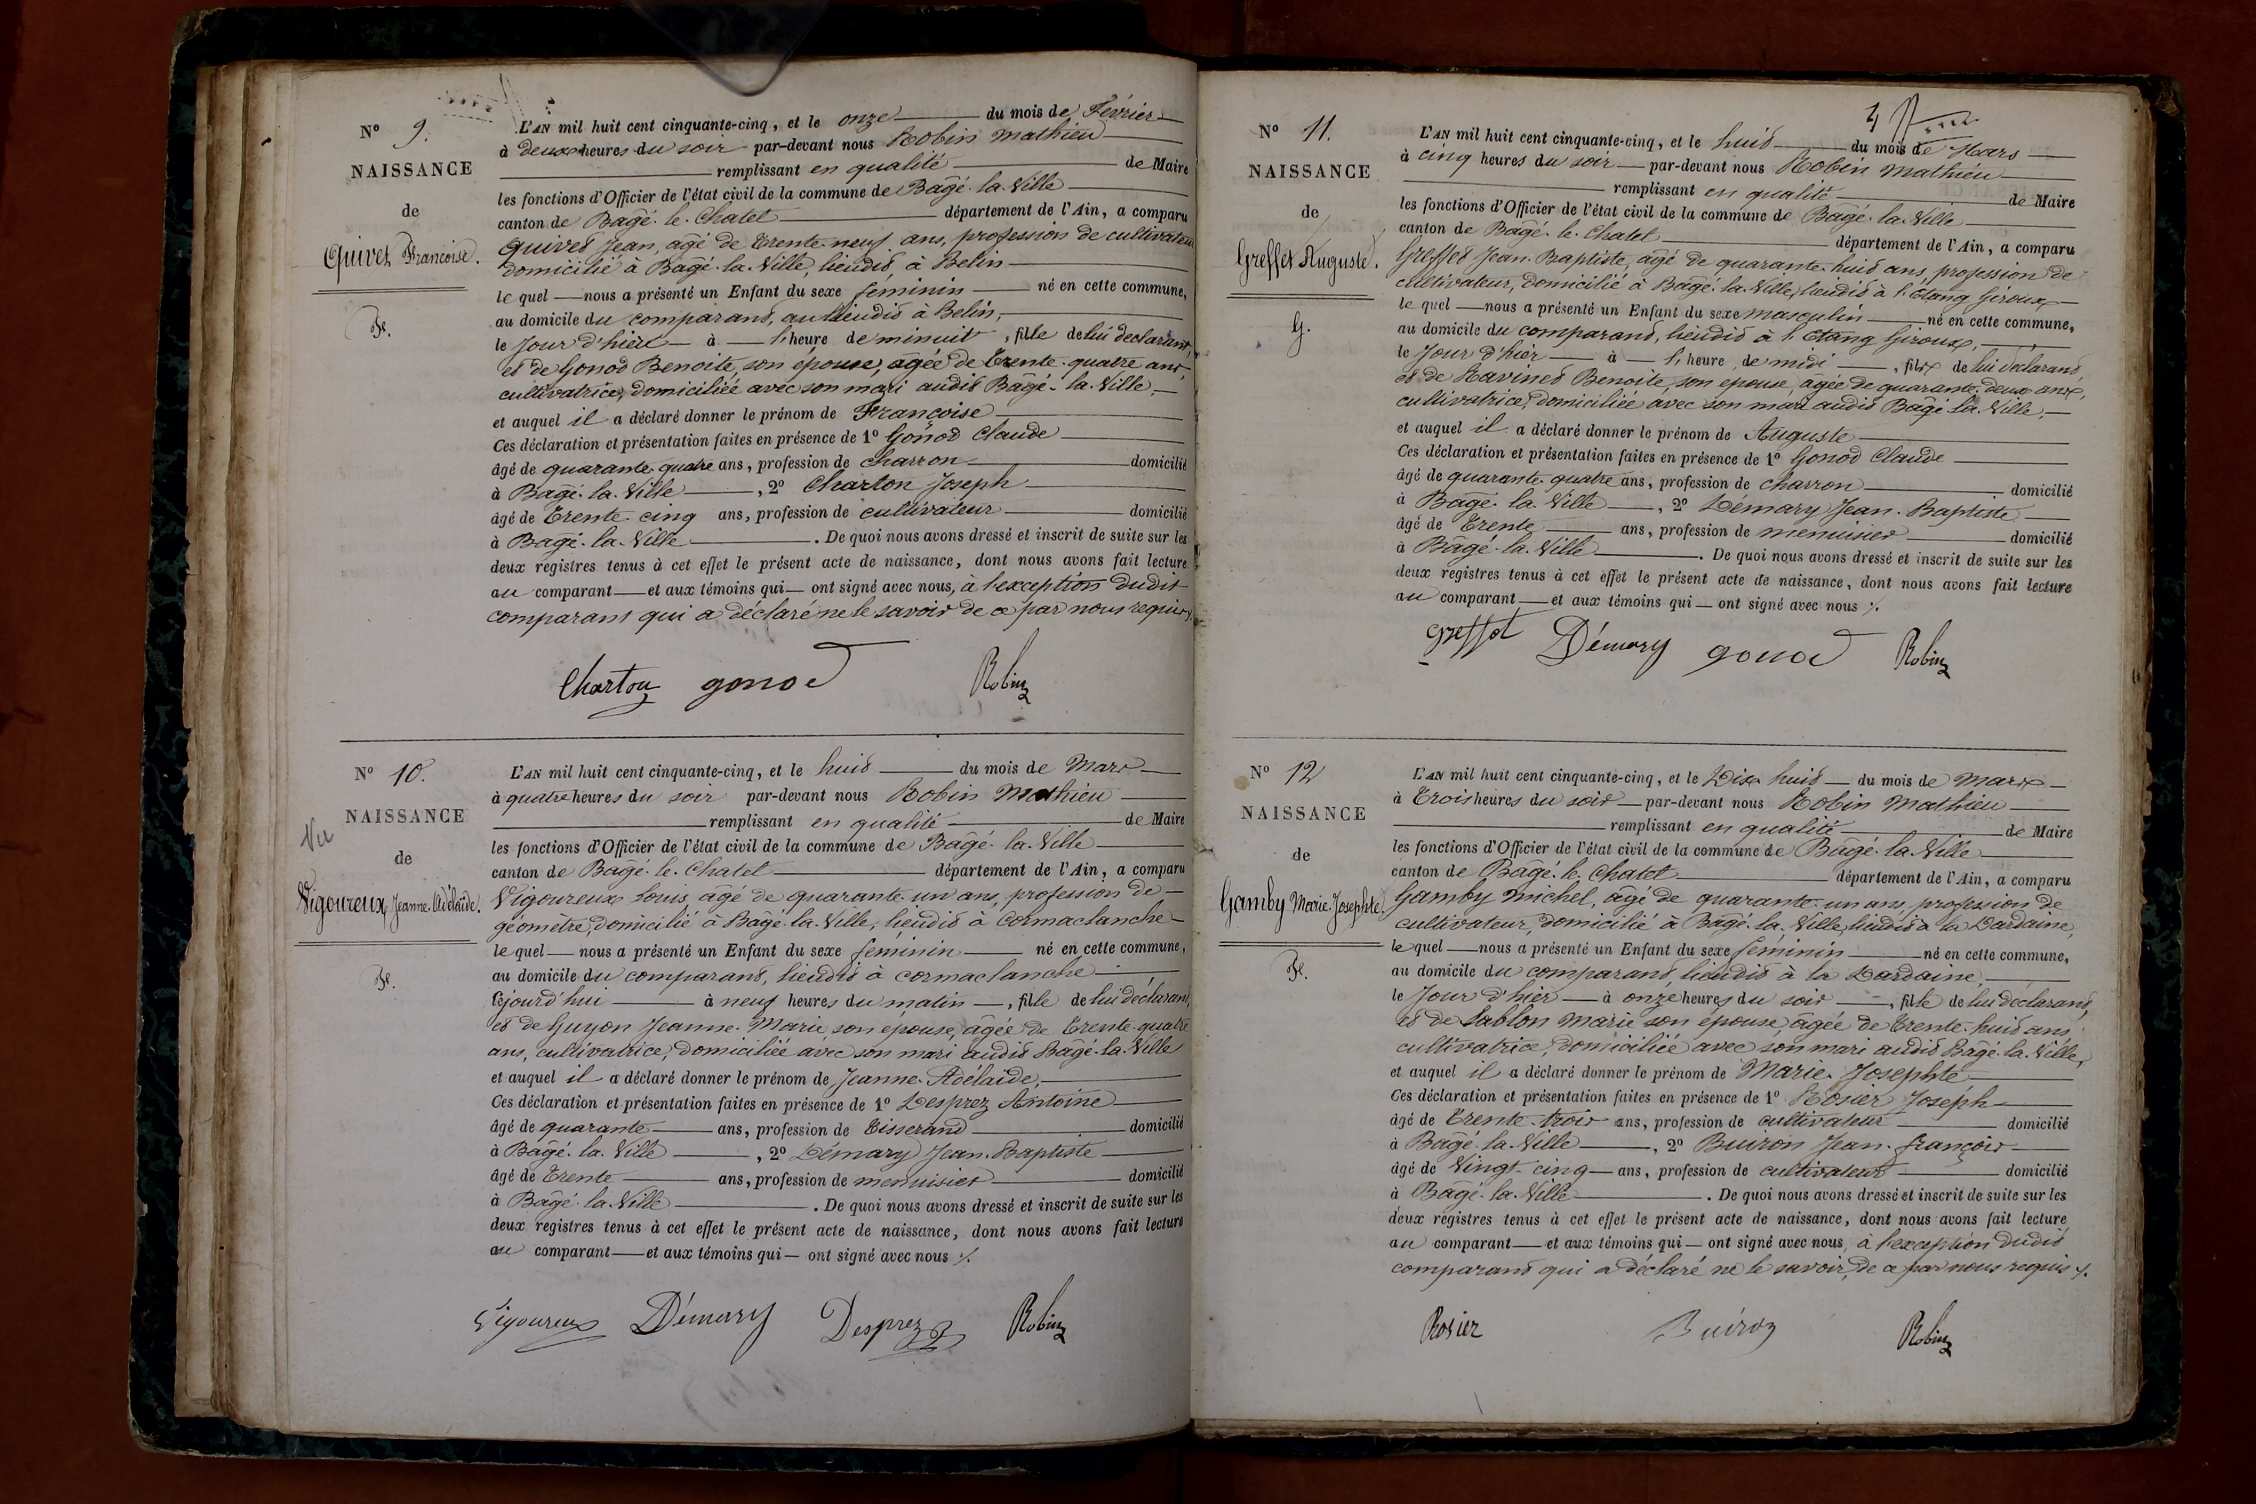 N° 9.
NAISSANCE
de
Quivet Françoise.
Fe.
L'AN mil huit cent cinquante-cinq, et le onze du mois de Février
à deux heures du soir par-devant nous Robin Mathieu
remplissant en qualité de Maire
les fonctions d'Officier de l'état civil de la commune de Bâgé-la-Ville
canton de Bâgé-le-Chatel département de l'Ain, a comparu
Quivet Jean, âgé de trente-neuf ans, profession de cultivateur
domicilié à Bâgé-la-Ville, lieudit à Belin
le quel nous a présenté un Enfant du sexe féminin né en cette commune,
au domicile du comparant, au lieudit à Belin,
le jour d'hier à l'heure de minuit, fille de lui déclarant,
et de Gonod Benoite, son épouse, agée de trente-quatre ans,
cultivatrice, domiciliée avec son mari audit Bâgé-la-Ville,
et auquel il a déclaré donner le prénom de Françoise
Ces déclaration et présentation faites en présence de 1° Gonod Claude
âgé de quarante-quatre ans, profession de charron domicilié
à Bâgé-la-Ville, 2° Charton Joseph
âgé de trente-cinq ans, profession de cultivateur domicilié
à Bagé-la-Ville. De quoi nous avons dressé et inscrit de suite sur les
deux registres tenus à cet effet le présent acte de naissance, dont nous avons fait lecture
au comparant et aux témoins qui ont signé avec nous, à l'exception dudit
comparant qui a déclaré ne le savoir de ce par nous requis
Charton gonod Robin
N° 10.
NAISSANCE
Vu
de
Vigoureux Jeanne-Adélaïde.
Fe.
L'AN mil huit cent cinquante-cinq, et le huit du mois de Mars
à quatre heures du soir par-devant nous Robin Mathieu
remplissant en qualité de Maire
les fonctions d'Officier de l'état civil de la commune de Bâgé-la-Ville
canton de Bâgé-le-Chatel département de l'Ain, a comparu
Vigoureux Louis, âgé de quarante-un ans, profession de
géomètre, domicilié à Bâgé-la-Ville, lieudit à Cormaclanche
le quel nous a présenté un Enfant du sexe féminin né en cette commune,
au domicile du comparant, lieudit à cormaclanche
cejourd'hui à neuf heures du matin, fille de lui déclarant,
et de Guyon Jeanne-Marie son épouse, âgée de trente-quatre
ans, cultivatrice, domiciliée avec son mari audit Bâgé-la-Ville
et auquel il a déclaré donner le prénom de Jeanne-Adélaïde,
Ces déclaration et présentation faites en présence de 1° Desprez Antoine
âgé de quarante ans, profession de tisserand domicilié
à Bâgé-la-Ville, 2° Démary Jean-Baptiste
âgé de trente ans, profession de menuisier domicilié
à Bâgé-la-Ville. De quoi nous avons dressé et inscrit de suite sur les
deux registres tenus à cet effet le présent acte de naissance, dont nous avons fait lecture
au comparant et aux témoins qui ont signé avec nous
Vigoureux Démary Desprez Robin
N° 11.
NAISSANCE
de
Greffet Auguste.
G.
L'AN mil huit cent cinquante-cinq, et le huit du mois de Mars
à cinq heures du soir par-devant nous Robin Mathieu
remplissant en qualité de Maire
les fonctions d'Officier de l'état civil de la commune de Bâgé-la-Ville
canton de Bâgé-le-Chatel département de l'Ain, a comparu
Greffet Jean-Baptiste, âgé de quarante-huit ans, profession de
cultivateur, domicilié à Bâgé-la-Ville, lieudit à l'Étang Giroux
le quel nous a présenté un Enfant du sexe masculin né en cette commune,
au domicile du comparant, lieudit à l'Étang Giroux,
le jour d'hier à l'heure de midi, fils de lui déclarant
et de Ravinet Benoite, son épouse, agée de quarante-deux ans,
cultivatrice, domiciliée avec son mari audit Bâgé-la-Ville,
et auquel il a déclaré donner le prénom de Auguste
Ces déclaration et présentation faites en présence de 1° Gonod Claude
âgé de quarante-quatre ans, profession de charron domicilié
à Bâgé-la-Ville, 2° Démary Jean-Baptiste
âgé de trente ans, profession de menuisier domicilié
à Bâgé-la-Ville. De quoi nous avons dressé et inscrit de suite sur les
deux registres tenus à cet effet le présent acte de naissance, dont nous avons fait lecture
au comparant et aux témoins qui ont signé avec nous
greffet Démary gonod Robin
N° 12
NAISSANCE
de
Gamby Marie-Josephte.
Fe.
L'AN mil huit cent cinquante-cinq, et le Dix-huit du mois de Mars
à trois heures du soir par-devant nous Robin Mathieu
remplissant en qualité de Maire
les fonctions d'Officier de l'état civil de la commune de Bâgé-la-Ville
canton de Bâgé-le-Chatel département de l'Ain, a comparu
Gamby Michel, âgé de quarante-un ans, profession de
cultivateur, domicilié à Bâgé-la-Ville, lieudit à la Dardaine,
le quel nous a présenté un Enfant du sexe féminin né en cette commune,
au domicile du comparant, lieudit à la Dardaine,
le jour d'hier à onze heures du soir, fille de lui déclarant,
et de Sablon Marie son épouse, âgée de trente-huit ans,
cultivatrice, domiciliée avec son mari audit Bâgé-la-Ville,
et auquel il a déclaré donner le prénom de Marie-Josephte
Ces déclaration et présentation faites en présence de 1° Rosier Joseph
âgé de trente-trois ans, profession de cultivateur domicilié
à Bâgé-la-Ville, 2° Buiron Jean-françois
âgé de vingt-cinq ans, profession de cultivateur domicilié
à Bâgé-la-Ville. De quoi nous avons dressé et inscrit de suite sur les
deux registres tenus à cet effet le présent acte de naissance, dont nous avons fait lecture
au comparant et aux témoins qui ont signé avec nous, à l'exception dudit
comparant qui a déclaré ne le savoir, de ce par nous requis
Rosier Buiron Robin